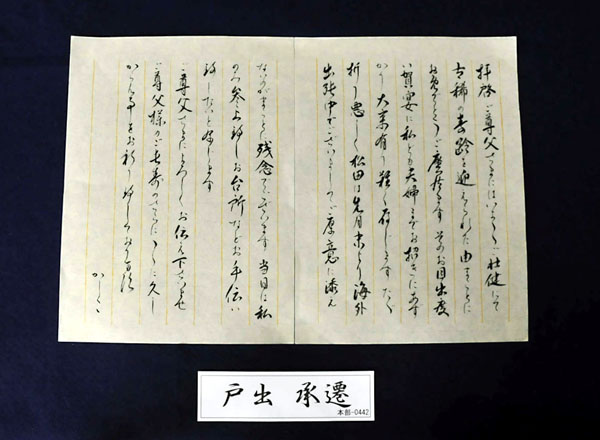 拝啓 ご尊父さまにはいよいよご壮健にて
古稀の寿齢を迎えられた由まことに
そのお目出度
い賀宴に私ども夫婦までお招きにあず
かり 大変有り難く存じます ただ
折り悪しく松田は先月末より海外
出張中でございましてご厚意に添え
ないのがまことに残念でございます 当日は私
のみ参上致しお台所などお手伝い
致したいと存じます
ご尊父さまによろしくお伝え下さいませ
ご尊父様のご長寿のさらに久し
からん事をお祈り致しております
かしこ
戸出 承遷
本部-0442